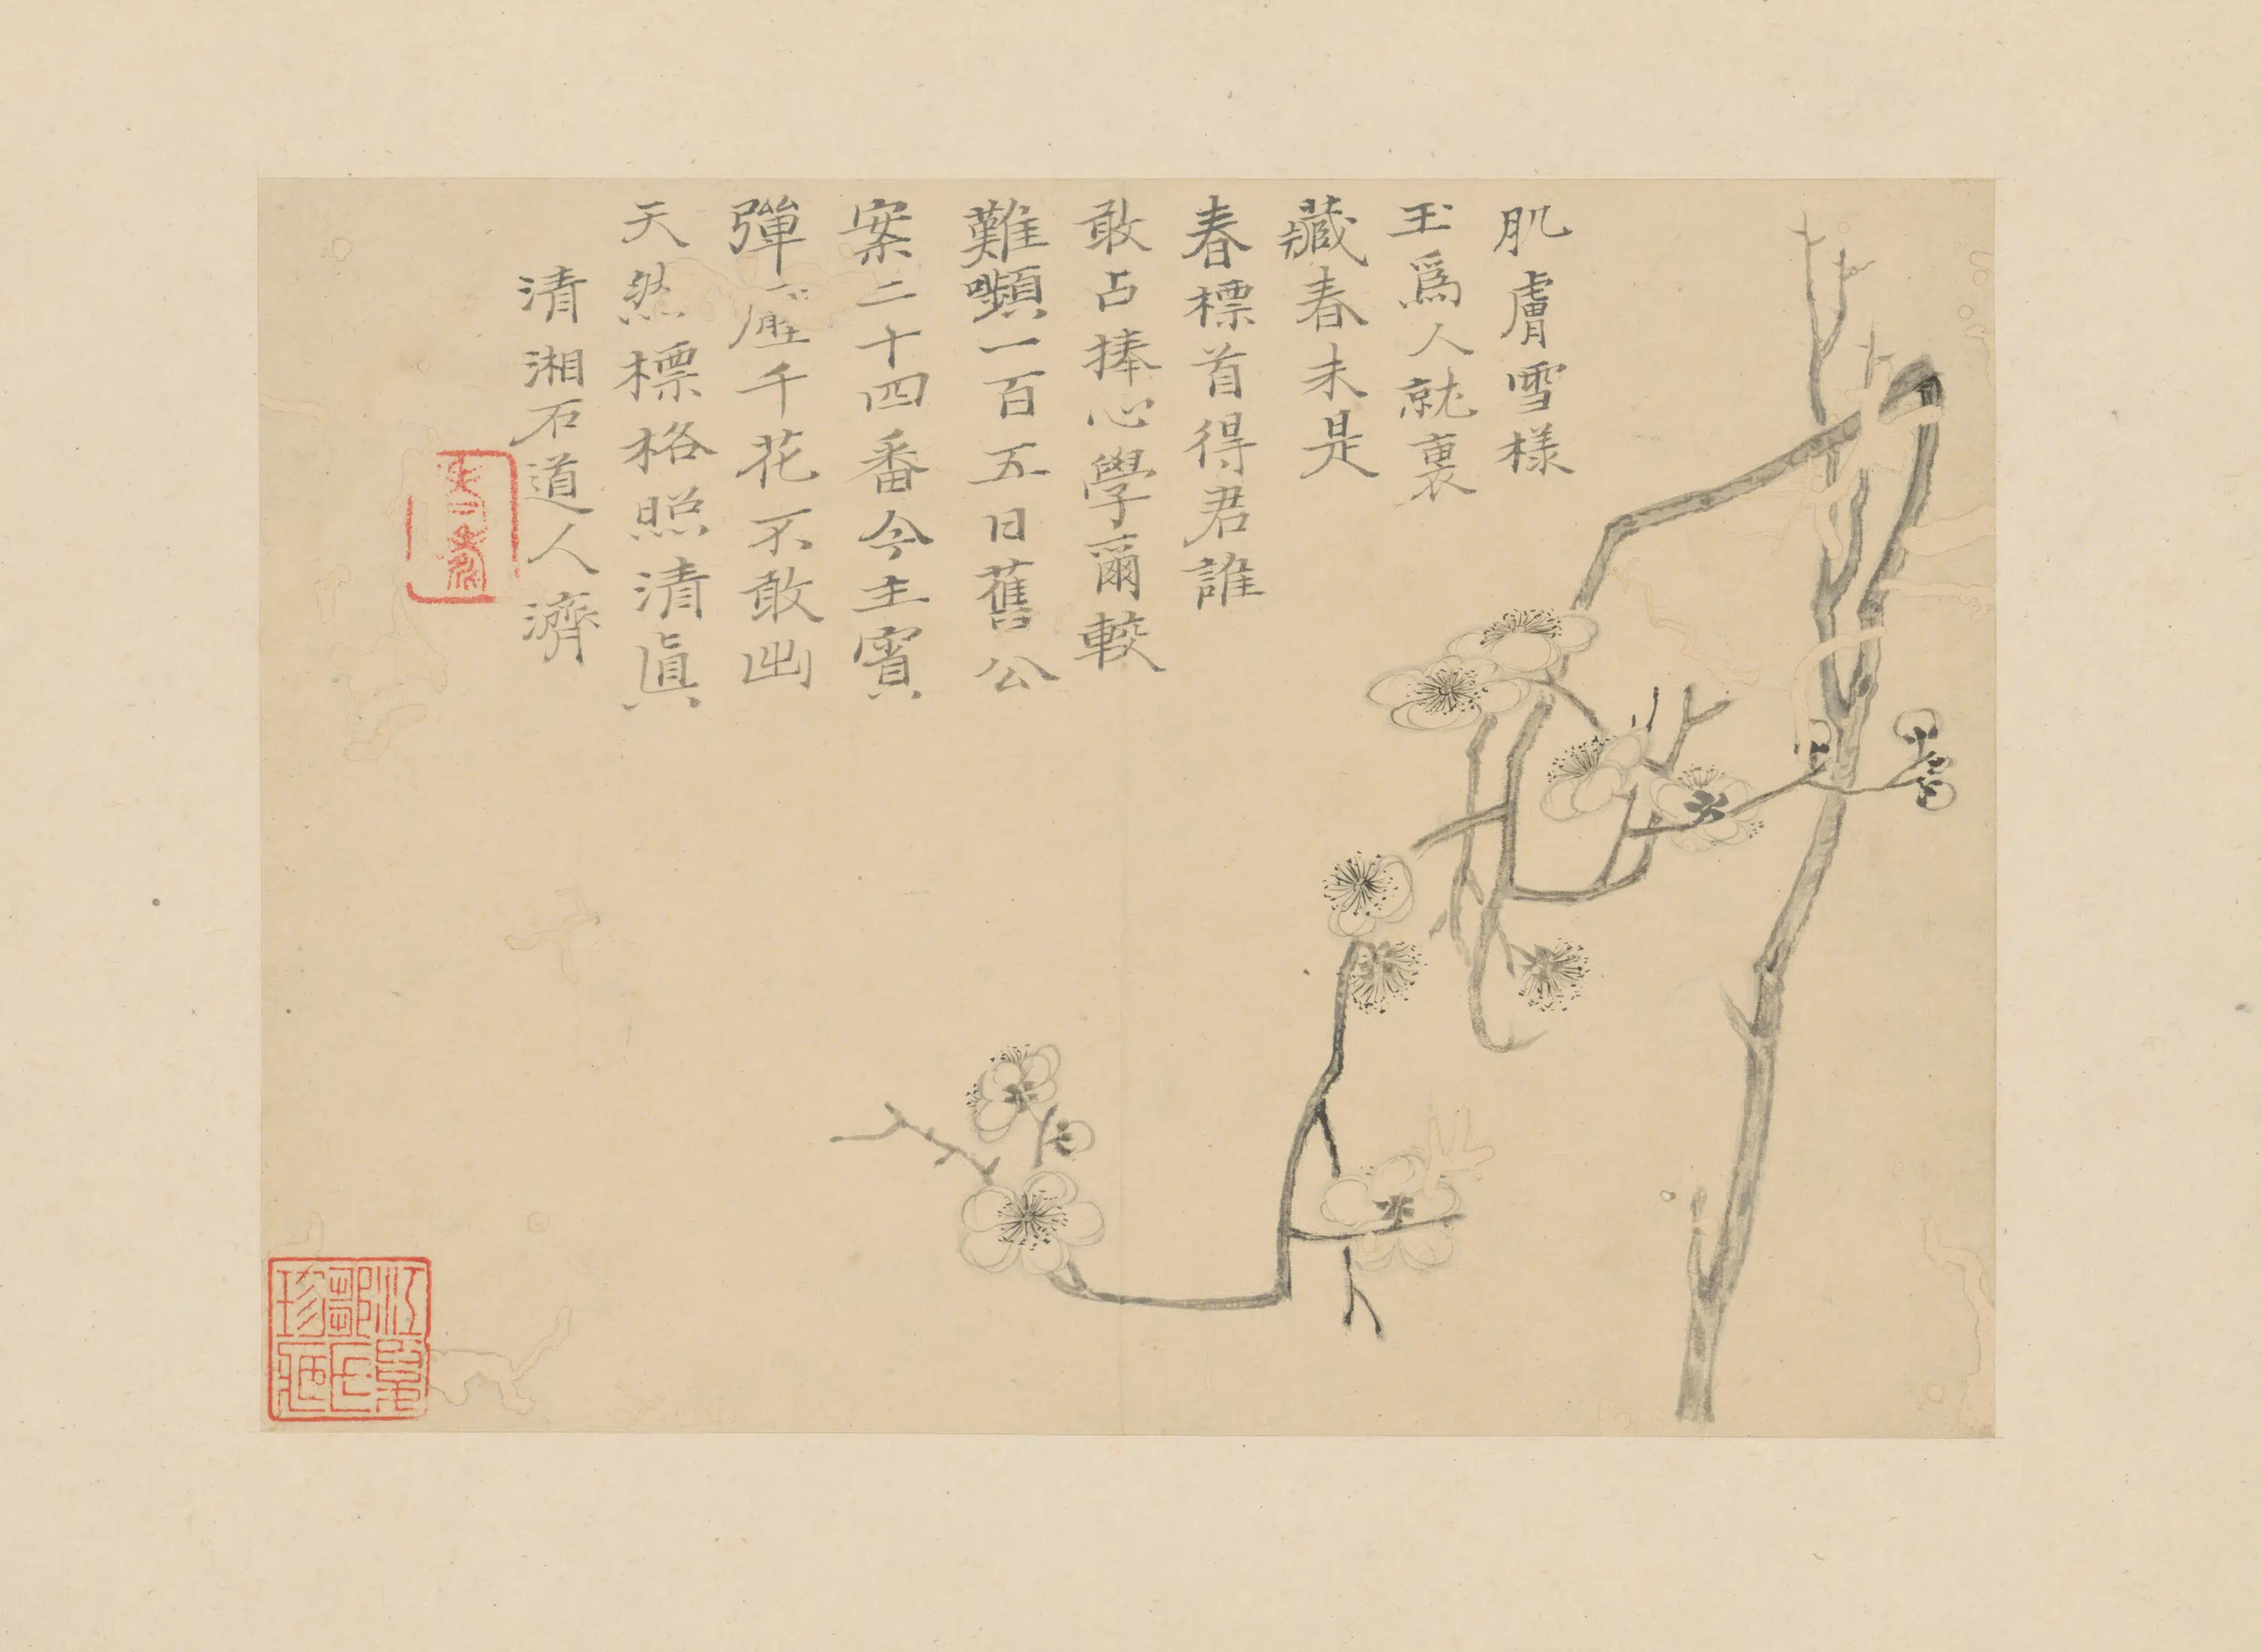 肌膚雪樣
玉為人就裏
藏春未是
春標首得君誰
敢占捧心學爾較
難顰一百五日舊公
案二十四番今主賓
彈壓千花不敢出
天然標格照清眞
清湘石道人濟
江南
鄒氏
珍藏